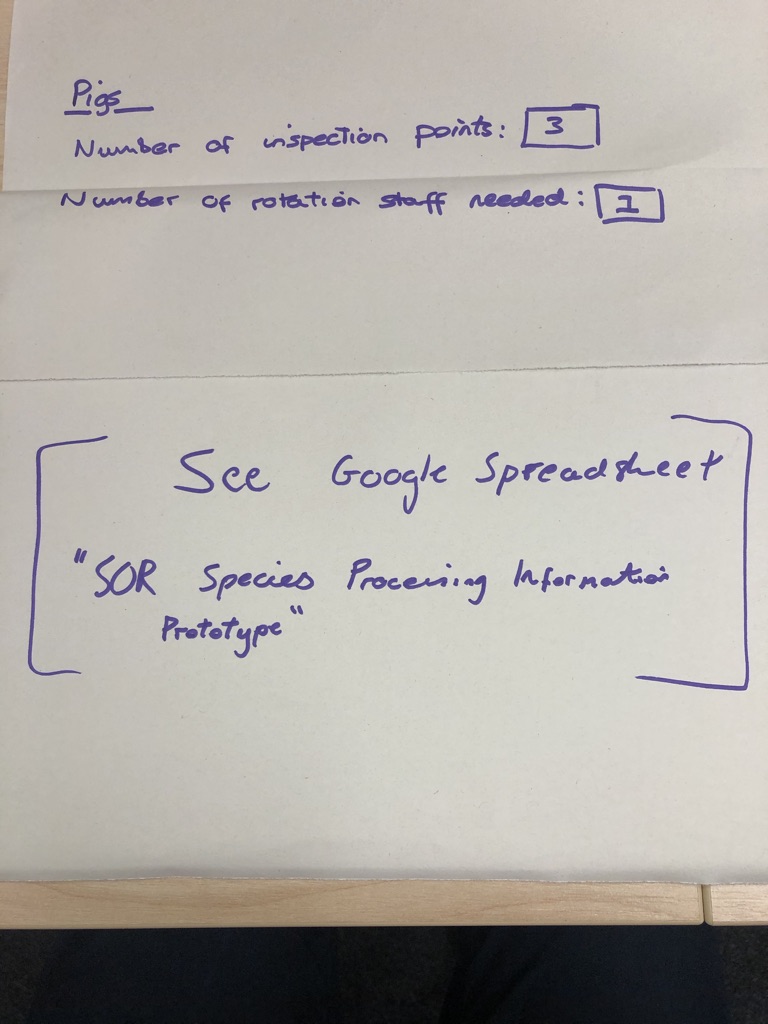 Pigs
Number of inspection points: 3
Number of rotation staff needed: 1
See Google Spreadsheet
"SOR Species Processing Information
Prototype"